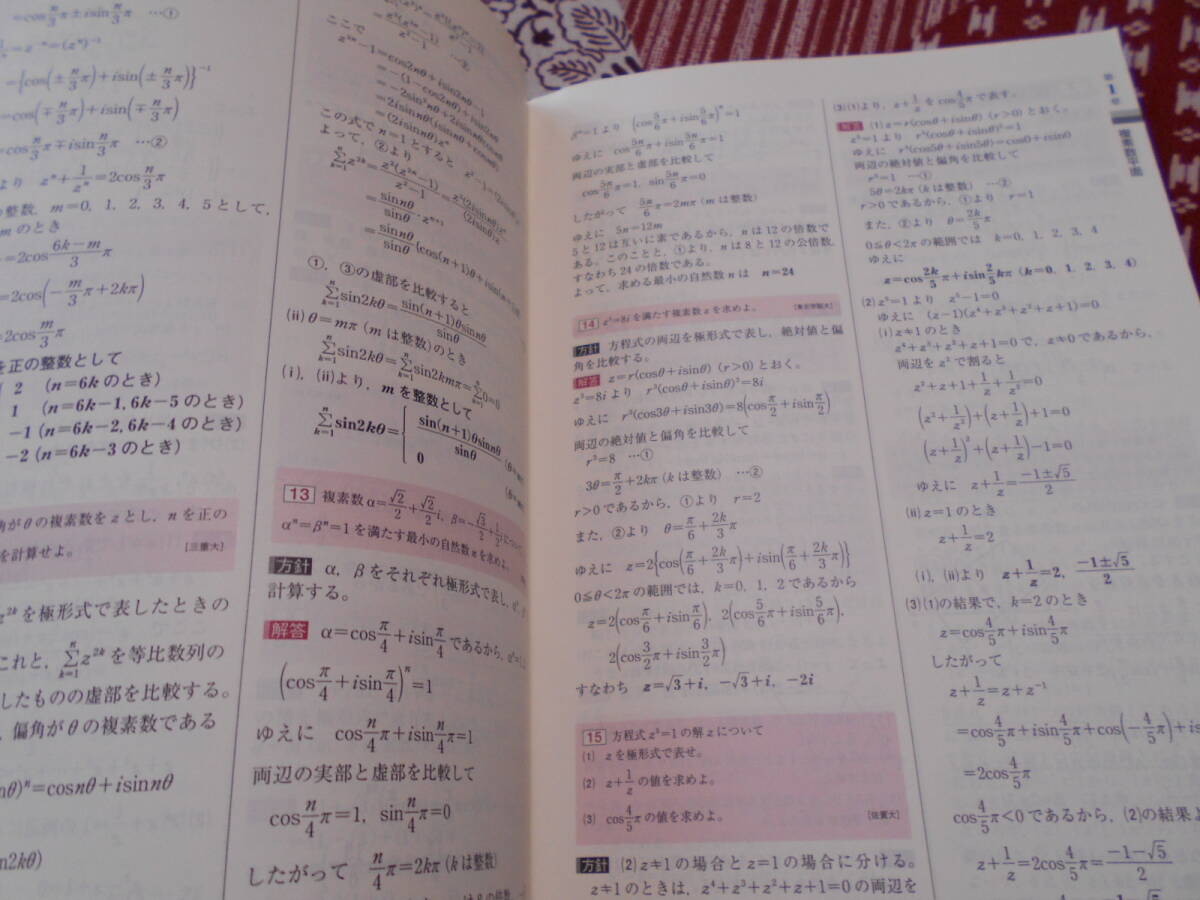 =cos n/3 π±isin n/3 π …①
=z⁻ⁿ=(zⁿ)⁻¹
={cos(± n/3 π)+isin(± n/3 π)}⁻¹
=cos(∓ n/3 π)+isin(∓ n/3 π)
=cos n/3 π∓isin n/3 π …②
より zⁿ+1/zⁿ=2cos n/3 π
整数, m=0, 1, 2, 3, 4, 5として,
mのとき
=2cos (6k−m)/3 π
=2cos(−m/3 π+2kπ)
=2cos m/3 π
を正の整数として
2 (n=6kのとき)
1 (n=6k−1, 6k−5のとき)
−1 (n=6k−2, 6k−4のとき)
−2 (n=6k−3のとき)
角がθの複素数をzとし, nを正の
を計算せよ。 [三重大]
z²ᵏを極形式で表したときの
これと, Σ[k=1→n] z²ᵏを等比数列の
したものの虚部を比較する。
偏角がθの複素数である
nθ)ⁿ=cosnθ+isinnθ
n2kθ)
ここで
z²ⁿ−1=cos2nθ+isin2nθ−1
=−(1−cos2nθ)+isin2nθ
=−2sin²nθ+
=2isinnθ(isinnθ+cosnθ)
=(2isinnθ)zⁿ
この式でn=1とすると
よって, ②より
Σ[k=1→n] z²ᵏ=z²(z²ⁿ−1)/(z²−1)
=sinnθ/sinθ・zⁿ⁺¹
=sinnθ/sinθ {cos(n+1)θ+
①, ③の虚部を比較すると
Σ[k=1→n] sin2kθ=sin(n+1)θsinnθ/sinθ
(ii) θ=mπ (mは整数)のとき
Σ[k=1→n] sin2kθ=Σ[k=1→n] sin2kmπ=Σ[k=1→n] 0=0
(i), (ii)より, mを整数として
Σ[k=1→n] sin2kθ={ sin(n+1)θsinnθ/sinθ
0
13 複素数α=√2/2+√2/2 i, β=−√3/2+1/2 iについて,
αⁿ=βⁿ=1を満たす最小の自然数nを求めよ。
方針 α, βをそれぞれ極形式で表し,
計算する。
解答 α=cos π/4+isin π/4であるから,
(cos π/4+isin π/4)ⁿ=1
ゆえに cos n/4 π+isin n/4 π=1
両辺の実部と虚部を比較して
cos n/4 π=1, sin n/4 π=0
したがって n/4 π=2kπ (kは整数)
βⁿ=1より (cos 5/6 π+isin 5/6 π)ⁿ=1
ゆえに cos 5n/6 π+isin 5n/6 π=1
両辺の実部と虚部を比較して
cos 5n/6 π=1, sin 5n/6 π=0
したがって 5n/6 π=2mπ (mは整数)
ゆえに 5n=12m
5と12は互いに素であるから, nは12の倍数で
ある。このことと, ①より, nは8と12の公倍数,
すなわち24の倍数である。
よって, 求める最小の自然数nは n=24
14 z³=8iを満たす複素数zを求めよ。
方針 方程式の両辺を極形式で表し, 絶対値と偏
角を比較する。
解答 z=r(cosθ+isinθ) (r>0)とおく。
z³=8iより r³(cosθ+isinθ)³=8i
ゆえに r³(cos3θ+isin3θ)=8(cos π/2+isin π/2)
両辺の絶対値と偏角を比較して
r³=8 …①
3θ=π/2+2kπ (kは整数) …②
r>0であるから, ①より r=2
また, ②より θ=π/6+2k/3 π
ゆえに z=2{cos(π/6+2k/3 π)+isin(π/6+2k/3 π)}
0≦θ<2πの範囲では, k=0, 1, 2であるから
z=2(cos π/6+isin π/6), 2(cos 5/6 π+isin 5/6 π),
2(cos 3/2 π+isin 3/2 π)
すなわち z=√3+i, −√3+i, −2i
15 方程式z⁵=1の解zについて
(1) zを極形式で表せ。
(2) z+1/zの値を求めよ。
(3) cos 4/5 πの値を求めよ。 [佐賀大]
方針 (2) z≠1の場合とz=1の場合に分ける。
z≠1のときは, z⁴+z³+z²+z+1=0の両辺を
第1章 複素数平面
(3) (1)より, z+1/zをcos 4/5 πで表す。
解答 (1) z=r(cosθ+isinθ) (r>0)とおく。
z⁵=1より r⁵(cosθ+isinθ)⁵=1
ゆえに r⁵(cos5θ+isin5θ)=cos0+isin0
両辺の絶対値と偏角を比較して
r⁵=1 …①
5θ=2kπ (kは整数) …②
r>0であるから, ①より r=1
また, ②より θ=2k/5 π
0≦θ<2πの範囲では k=0, 1, 2, 3, 4
ゆえに
z=cos 2k/5 π+isin 2/5 kπ (k=0, 1, 2, 3, 4)
(2) z⁵=1より z⁵−1=0
ゆえに (z−1)(z⁴+z³+z²+z+1)=0
(i) z≠1のとき
z⁴+z³+z²+z+1=0で, z≠0であるから,
両辺をz²で割ると
z²+z+1+1/z+1/z²=0
(z²+1/z²)+(z+1/z)+1=0
(z+1/z)²+(z+1/z)−1=0
ゆえに z+1/z=(−1±√5)/2
(ii) z=1のとき
z+1/z=2
(i), (ii)より z+1/z=2, (−1±√5)/2
(3) (1)の結果で, k=2のとき
z=cos 4/5 π+isin 4/5 π
したがって
z+1/z=z+z⁻¹
=cos 4/5 π+isin 4/5 π+cos(−4/5 π)+is
=2cos 4/5 π
cos 4/5 π<0であるから, (2)の結果よ
z+1/z=2cos 4/5 π=(−1−√5)/2